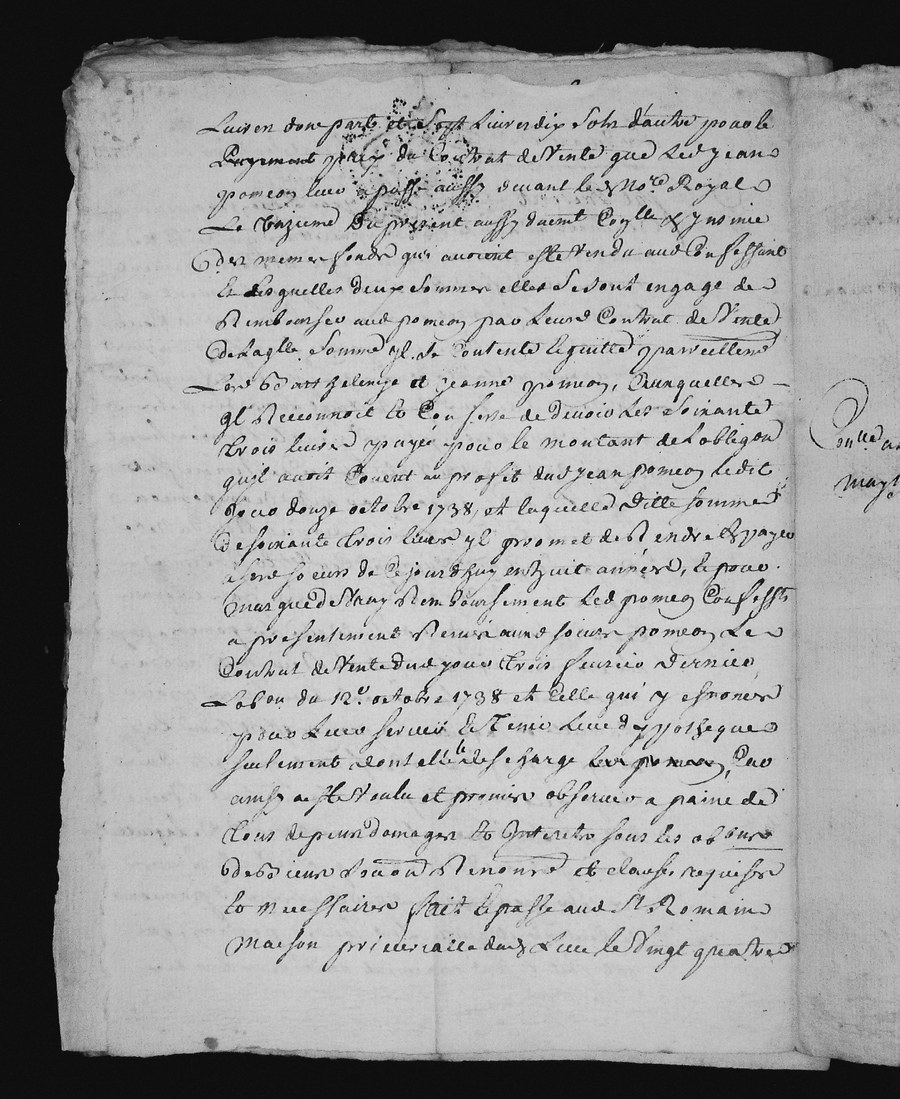 Livres d'une part et Sept Livres dix Sols d'autre pour le
payement prix du Contrat de Vente que Led jean
pomeon leur a passé aussy devant le d No.re Royal
Le onzieme du present aussy duemt Collé &
des memes fonds qui avoient esté Vendu aud Confessant
Et desquelles deux Sommes elles Se Sont engagé de
Rembourser aud pomeon par Leurd Contrat de Vente
de Laqlle Somme yl Se Contente & quitte pareillemt
Lesd et jeanne pomeon, auxquelles
yl Reconnoit & Confesse devoir Les Soixante
trois livres payé pour le montant de Lobligon
qu'il avoit au profit dud jean pomeon ledit
jour douze octobre 1738, et laquelle ditte Somme
de Soixante trois livres yl promet de Rendre & payer
a sesd soeurs de Ce jourdhuy en huit années, & pour
marque de Remboursement Led pomeon Confesst
a presentement Remis auxd soeurs pomeon Le
Contrat de Vente dud jour trois fevrier dernier
Lobon du 12.e octobre 1738 et Celle qui y
pour Leur servir & Tenir Lieu d'ypotheque
seulement dont elle Le pomeon, Car
ainsy a esté Voulu et promis observer a paine de
tous depens domages & Interets sous les obons
de Biens Renonce et clauses requises
& necessaires fait & passé aud St Romain
maison dud Lieu le Vingt quatre
may